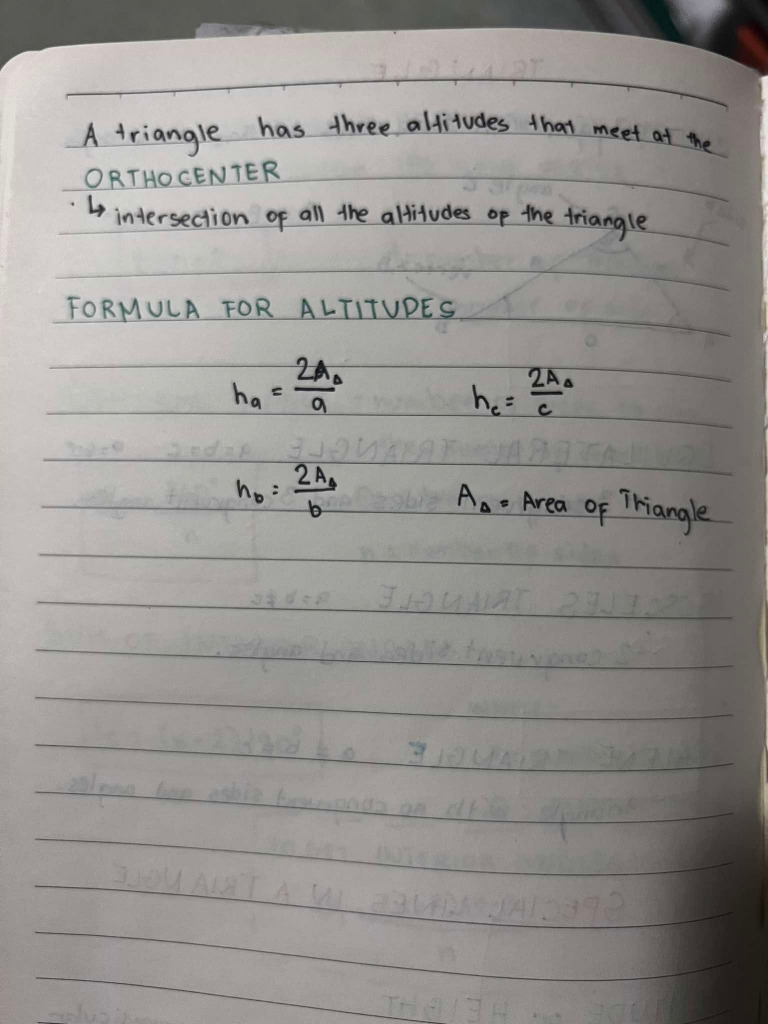 A triangle has three altitudes that meet at the
ORTHOCENTER
↳ intersection of all the altitudes of the triangle
FORMULA FOR ALTITUDES
hₐ = 2A△/a
h_c = 2A△/c
h_b = 2A△/b
A△ = Area of Triangle